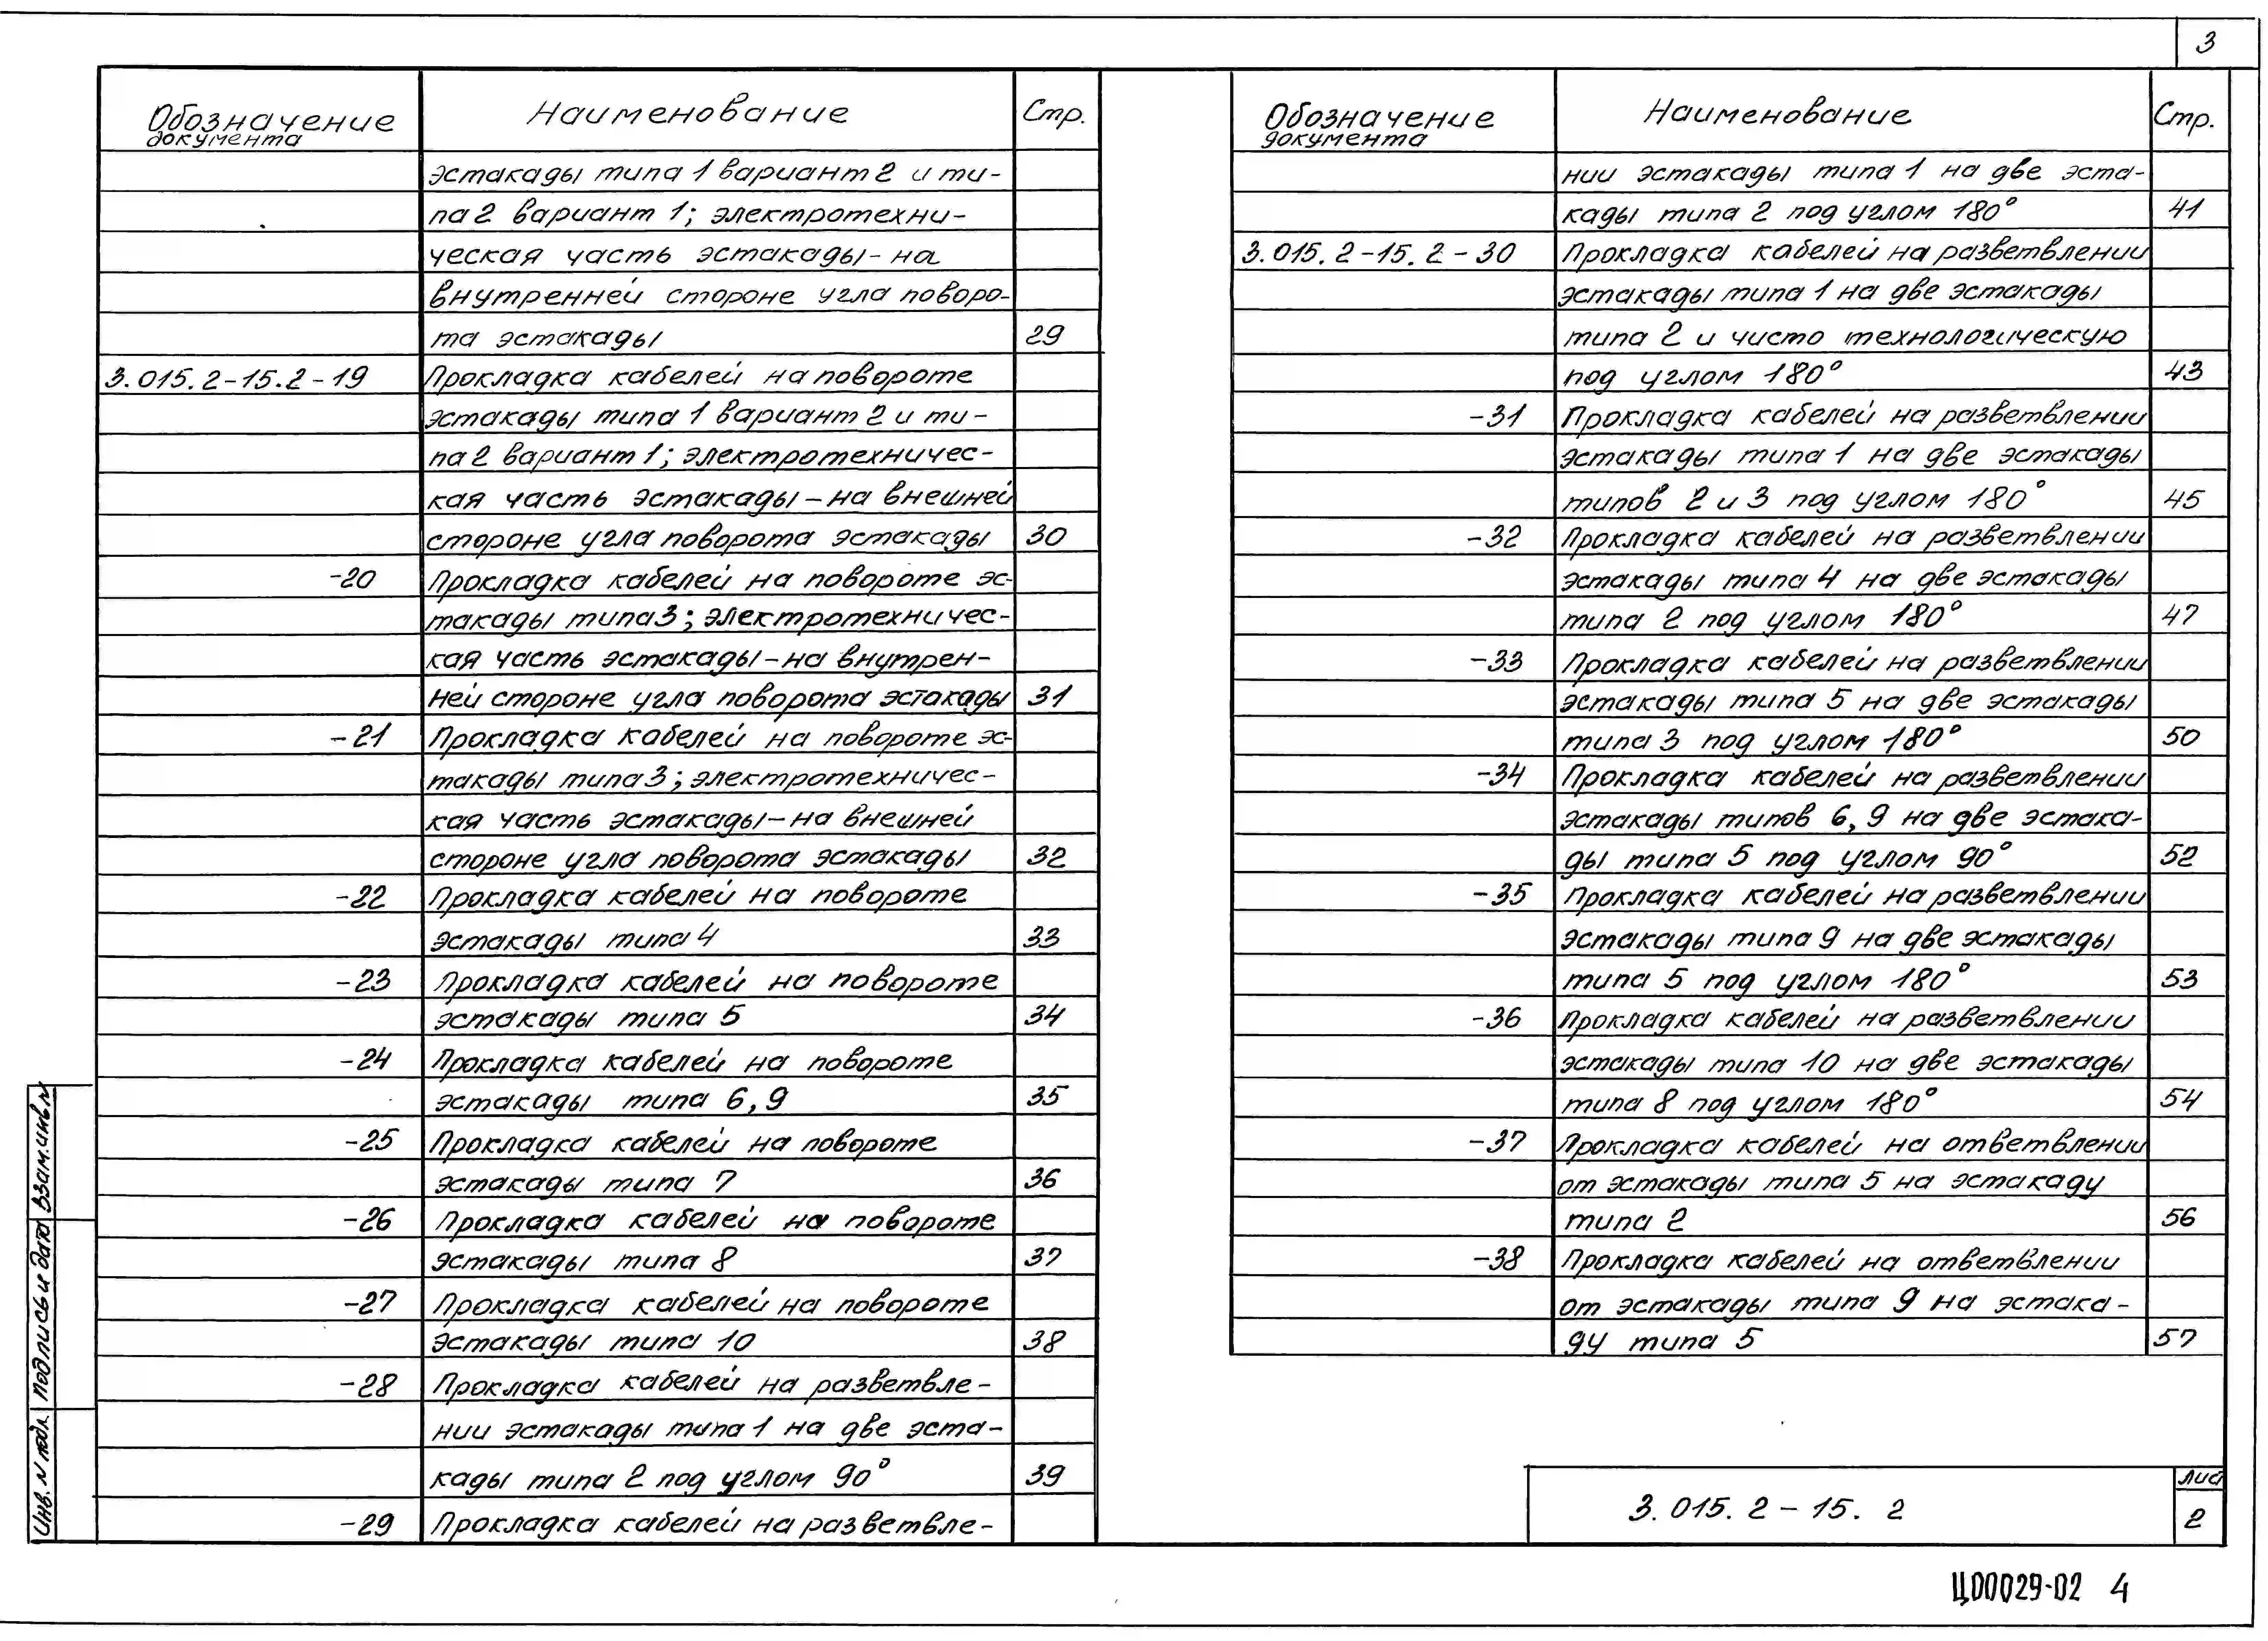 3
Обозначение документа Наименование Стр.
эстакады типа 1 вариант 2 и ти-
па 2 вариант 1; электротехни-
ческая часть эстакады - на
внутренней стороне угла поворо-
та эстакады 29
3.015.2-15.2-19 Прокладка кабелей на повороте
эстакады типа 1 вариант 2 и ти-
па 2 вариант 1; электротехничес-
кая часть эстакады - на внешней
стороне угла поворота эстакады 30
-20 Прокладка кабелей на повороте эс-
такады типа 3; электротехничес-
кая часть эстакады - на внутрен-
ней стороне угла поворота эстакады 31
-21 Прокладка кабелей на повороте эс-
такады типа 3; электротехничес-
кая часть эстакады - на внешней
стороне угла поворота эстакады 32
-22 Прокладка кабелей на повороте
эстакады типа 4 33
-23 Прокладка кабелей на повороте
эстакады типа 5 34
-24 Прокладка кабелей на повороте
эстакады типа 6, 9 35
-25 Прокладка кабелей на повороте
эстакады типа 7 36
-26 Прокладка кабелей на повороте
эстакады типа 8 37
-27 Прокладка кабелей на повороте
эстакады типа 10 38
-28 Прокладка кабелей на разветвле-
нии эстакады типа 1 на две эста-
кады типа 2 под углом 90° 39
-29 Прокладка кабелей на разветвле-
Обозначение документа Наименование Стр.
нии эстакады типа 1 на две эста-
кады типа 2 под углом 180° 41
3.015.2-15.2-30 Прокладка кабелей на разветвлении
эстакады типа 1 на две эстакады
типа 2 и чисто технологическую
под углом 180° 43
-31 Прокладка кабелей на разветвлении
эстакады типа 1 на две эстакады
типов 2 и 3 под углом 180° 45
-32 Прокладка кабелей на разветвлении
эстакады типа 4 на две эстакады
типа 2 под углом 180° 47
-33 Прокладка кабелей на разветвлении
эстакады типа 5 на две эстакады
типа 3 под углом 180° 50
-34 Прокладка кабелей на разветвлении
эстакады типов 6, 9 на две эстака-
ды типа 5 под углом 90° 52
-35 Прокладка кабелей на разветвлении
эстакады типа 9 на две эстакады
типа 5 под углом 180° 53
-36 Прокладка кабелей на разветвлении
эстакады типа 10 на две эстакады
типа 8 под углом 180° 54
-37 Прокладка кабелей на ответвлении
от эстакады типа 5 на эстакаду
типа 2 56
-38 Прокладка кабелей на ответвлении
от эстакады типа 9 на эстака-
ду типа 5 57
Инв. N подл. Подпись и дата Взам. инв. N
3.015.2-15.2
Лис
2
Ц00029-02 4